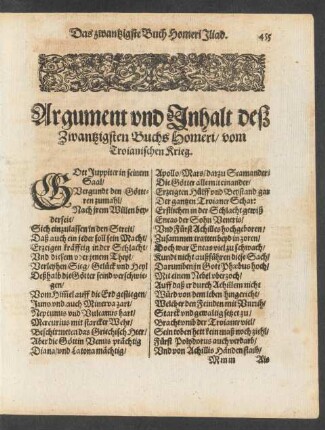 Das zwantzigste Buch Homeri Iliad.
435
Argument vnd Inhalt deß
Zwantzigsten Buchs Homeri/ vom
Troianischen Krieg.
GOtt Juppiter in seinem
Saal/
Vergundt den Götteren
zumahl/
Nach jrem Willen beyderseit/
Sich einzulassen in den Streit/
Daß auch ein jeder soll sein Macht/
Erzeigen kräfftig in der Schlacht/
Vnd diesem oder jenem Theyl/
Verleyhen Sieg/ Glück vnd Heyl
Deßhalb die Götter sind verschwiegen/
Vom Himel auff die Erd gestiegen/
Juno vnd auch Minerva zart/
Neptunus vnd Vulcanus hart/
Mercurius mit starcker Wehr/
Beschirmeten das Griechisch Heer/
Aber die Göttin Venus prächtig
Diana vnd Latona mächtig/
Apollo/ Mars/ darzu Scamander/
Die Götter alle mit einander/
Erzeigten Hülff vnd Beystand gar
Der gantzen Troianer Schar:
Erstlichen in der Schlacht gewiß
Eneas der Sohn Veneris/
Vnd Fürst Achilles hochgeboren/
Zusammen tratten beyd in zoren/
Doch war Eneas viel zu schwach/
Kundt nicht außführen diese Sach/
Darumb den in Gott Phœbus hoch/
Mit einem Nebel vberzoch/
Auff daß er durch Achillem nicht
Würd von dem leben hingericht/
Welcher den Feinden mit Vnruh/
Starck vnd gewaltig setzet zu/
Bracht vmb der Troianer viel/
Sein toben hett kein maß noch ziel/
Fürst Polydorus auch verdarb/
Vnd von Achillis Händen starb/
Als